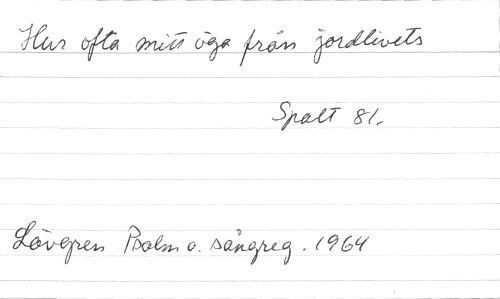 Hur ofta mitt öga från jordlivets
Spalt 81.
Lövgren Psalm o. sångreg. 1964